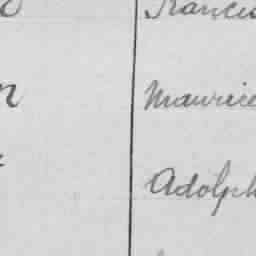 Francis
n Maurice
Adolph